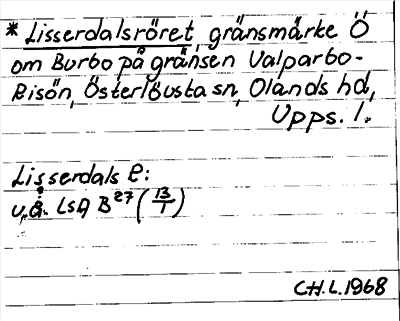 * Lisserdalsröret, gränsmärke Ö
om Burbo på gränsen Valparbo-
Risön, Österlövsta sn, Olands hd,
Upps. l.
Lisserdals R:
u.å. LSA B27 (13/1)
C.H.L. 1968